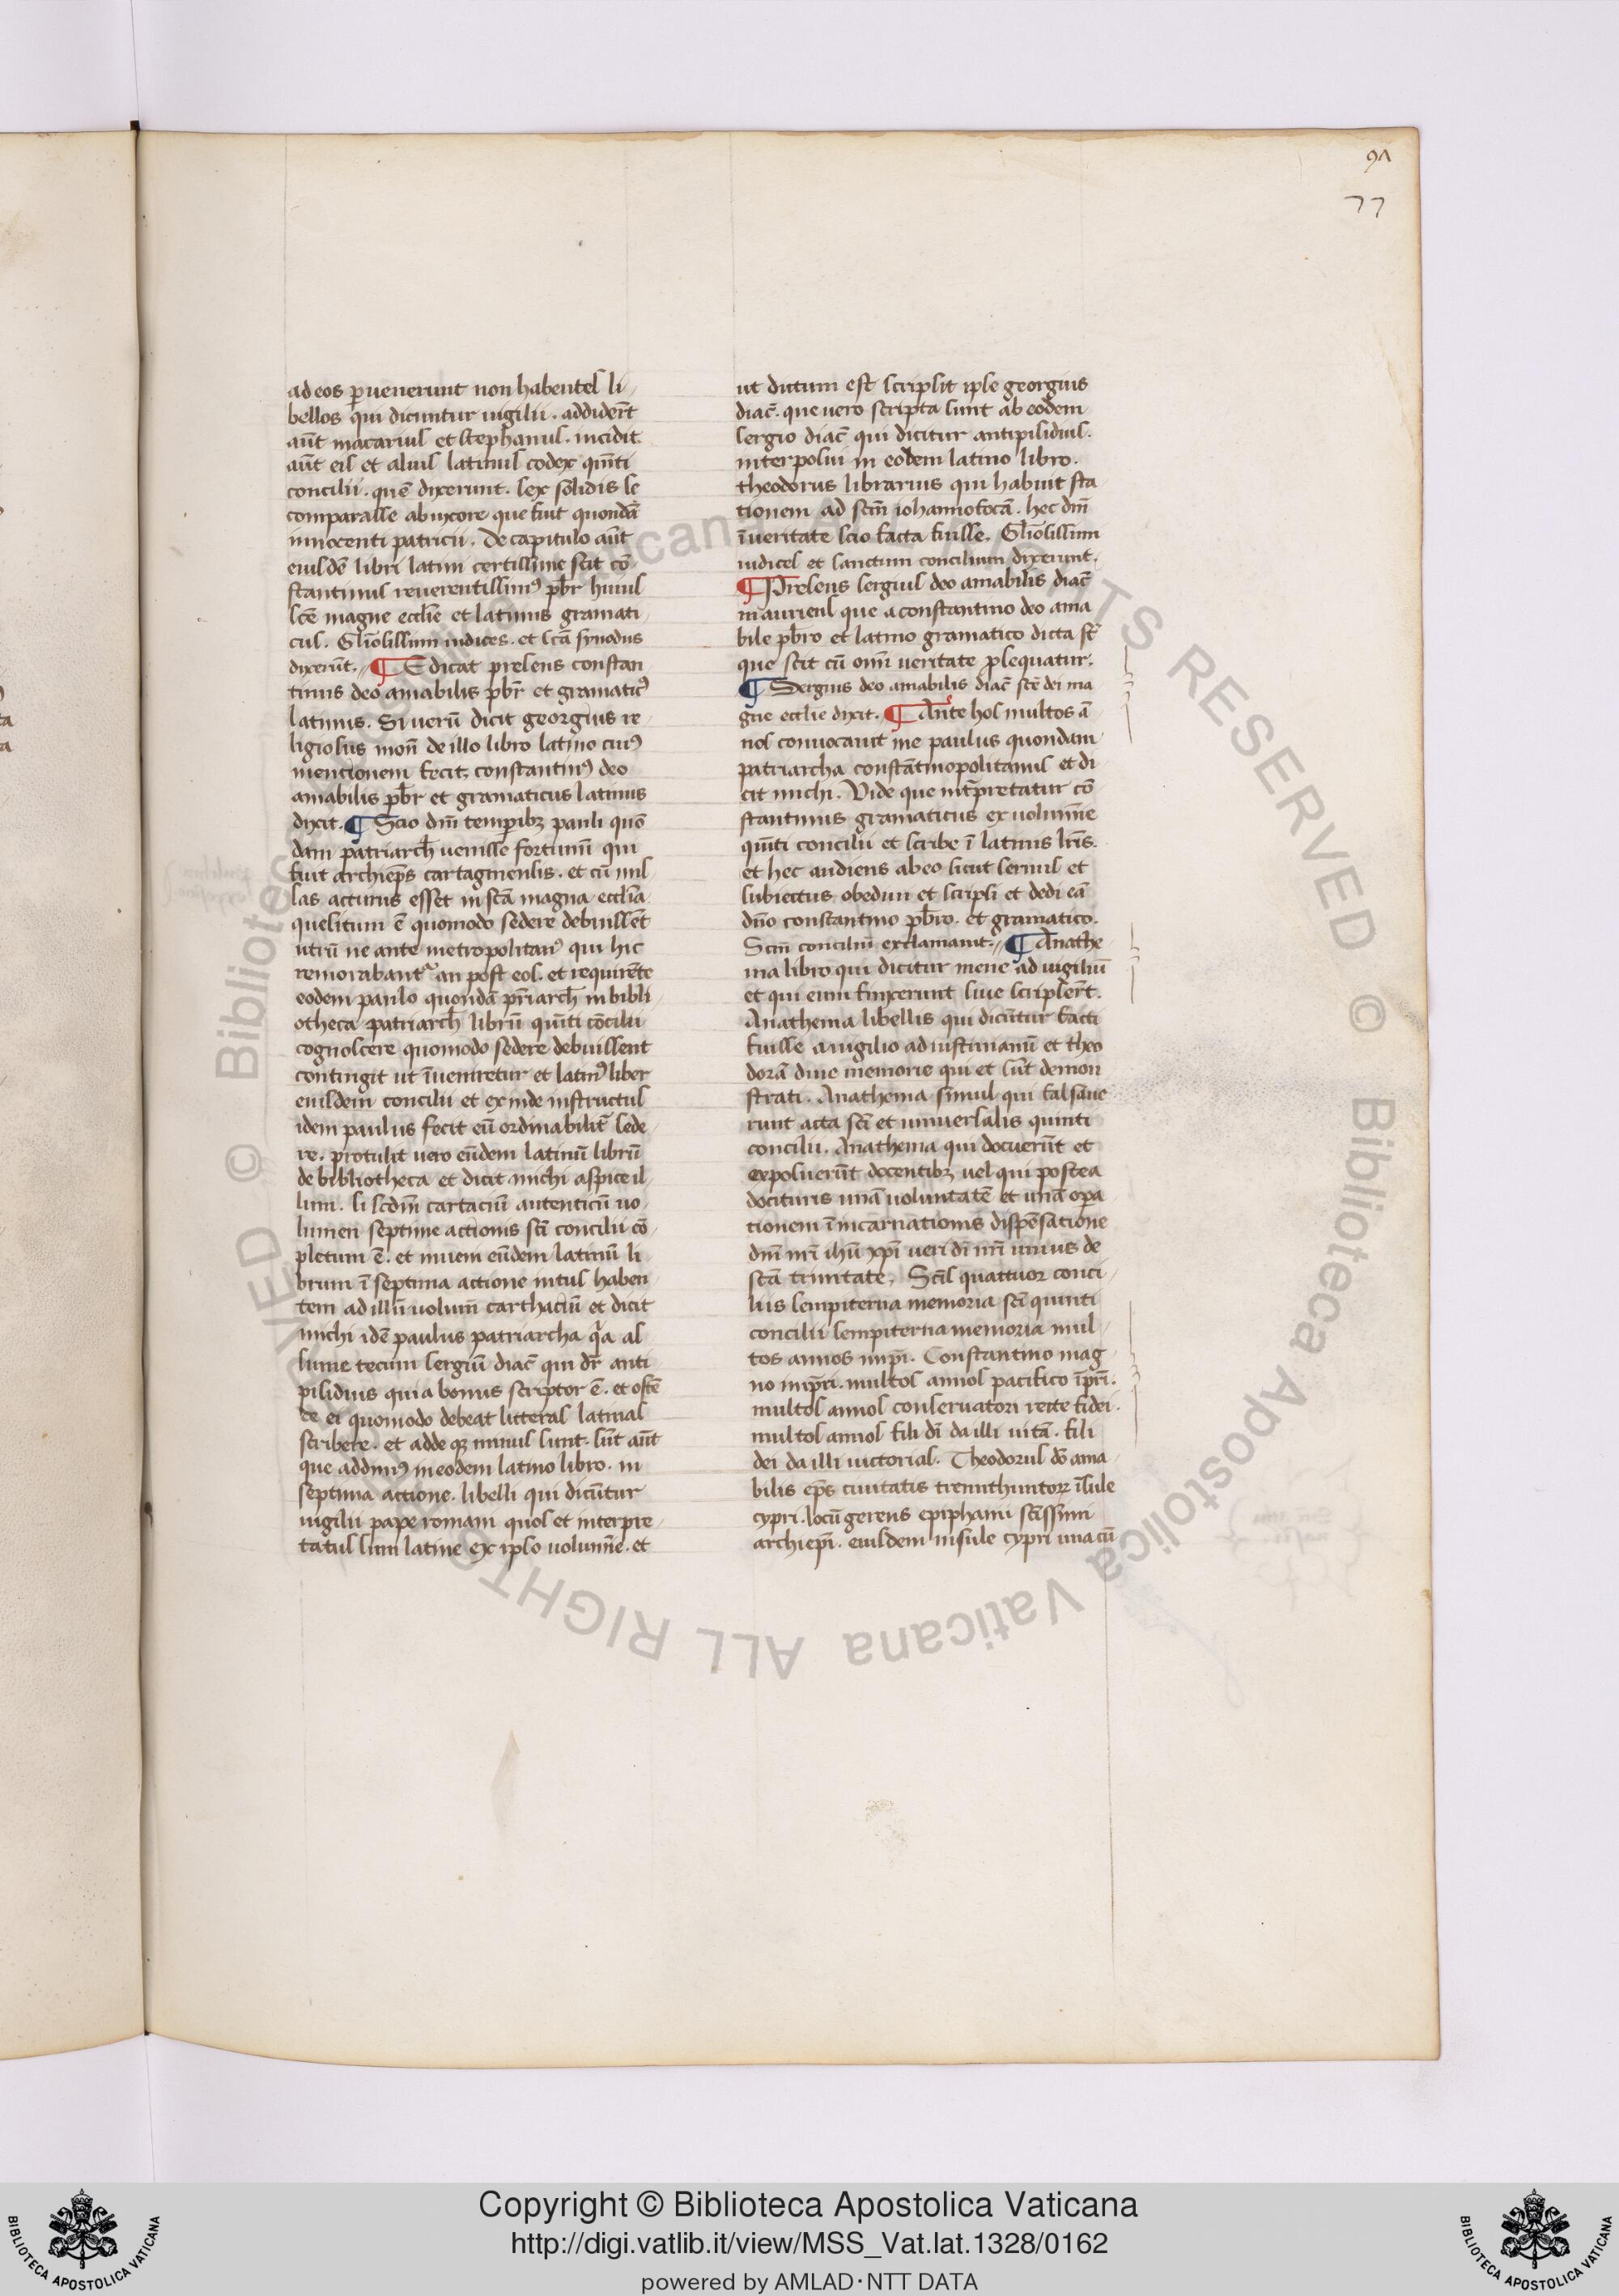 97
77
ad eos p̱uenerunt non habentes li-
bellos qui dicuntur uigilii. addider̄t
aūt macarius et stephanus. incidit
aūt eis et alius latinus codex qn̄ti
concilii. quē dixerunt. sex solidis se
comparasse ab uxore que fuit quondā
innocenti patricii. De capitulo aūt
eiusdē libri latini certissime scit cō-
stantinus reuerentissimꝰ pbr̄ huius
scē magne ecclīe et latinus gramati-
cus. Glīosissimi iudices. et scā synodus
dixerūt. ¶ Edicat presens constan
tinus deo amabilis pbr̄ et gramaticꝰ
latinus. Si uerū dicit georgius re-
ligiosus mon̄ de illo libro latino cuiꝰ
mentionem fecit, constantinꝰ deo
amabilis pbr̄ et gramaticus latinus
dixit. ¶ Scio dn̄i temporibꝫ pauli quō-
dam patriarch̄ uenisse fortunū qui
fuit archiep̄s cartaginensis. et cū mis
sas acturus esset in scā magna ecclīa
quesitum ē quomodo sedere debuissēt
utrū ne ante metropolitanꝰ qui hic
remorabantʳ an post eos. et requirēte
eodem paulo quondā pr̄iarch̄ in bibli
otheca patriarch̄ librū qn̄ti cōcilii
cognoscere quomodo sedere debuissent
contingit ut īueniretur et latinꝰ liber
eiusdem concilii et ex inde instructus
idem paulus fecit eū ordinabilit̄ sede
re. protulit uero eūdem latinū librū
de bibliotheca et dicit michi aspice il-
lum. si scdm̄ cartaciū autenticū uo-
lumen septime actionis scī concilii cō-
pletum ē. et inuem eūdem latinū li
brum ī septima actione intus haben-
tem ad illū uolum̄ carthaciū et dicit
michi idē paulus patriarcha qͣa as
sume tecum sergiū diac̄ qui dr̄ anti-
pisidius quia bonus scriptor ē. et ostē
de ei quomodo debeat litteras latinas
scribere. et adde qꝫ minus sunt. sūt aūt
que addimꝰ in eodem latino libro. in
septima actione. libelli qui dicūtur
uigilii pape romani quos et interpre-
tatus sum latine ex ipso uolumīe. et
ut dictum est scripsit ipse georgius
diac̄. que uero scripta sunt ab eodem
sergio diac̄ qui dicitur antipisidius.
interposui in eodem latino libro.
theodorus librarius qui habuit sta-
tionem ad scm̄ iohannofocā. hec dn̄i
īueritate scio facta fuisse. Glīosissimi
iudices et sanctum concilium dixerunt.
¶ Presens sergius deo amabilis diac̄
in aurieus que a constantino deo ama
bile pbro et latino gramatico dicta st̄
que scit cū omi ueritate p̱sequatur.
¶ Sergius deo amabilis diac̄ scē dei ma
gne ecclīe dixit. ¶ Ante hos multos ā
nos conuocauit me paulus quondam
patriarcha constātinopolitanus et di
cit michi. Vide que int̄pretatur cō
stantinus gramaticus ex uolumīe
qn̄ti concilii et scribe ī latinis lr̄is.
et hec audiens ab eo sicut seruus et
subiectus obediui et scripsi et dedi eā
dn̄o constantino pbro. et gramatico.
Scm̄ conciliū exclamauit. ¶ Anathe
ma libro qui dicitur mene ad uigiliū
et qui eum finxerunt siue scripser̄t.
Anathema libellis qui dicūtur facti
fuisse a uigilio ad iustinianū et theo
dorā diue memorie qui et sūt demon
strati. Anathema simul qui falsaue
runt acta scī et uniuersalis quinti
concilii. Anathema qui docuerūt et
exposuerūt docentibꝫ uel qui postea
docituris unā uoluntatē et unā opa
tionem ī incarnationis dispēsatione
dn̄i nr̄i ihū xp̄i ueri dī nr̄i unius de
scā trinitate. Scīs quattuor conci-
liis sempiterna memoria scī quinti
concilii sempiterna memoria mul-
tos annos imp̄i. Constantino mag
no imp̄ri. multos annos pacifico īpr̄i.
multos annos conseruatori recte fidei.
multos annos fili dī da illi uitā. fili
dei da illi uictorias. Theodorus dō ama
bilis ep̄s ciuitatis trenuthuntoꝝ īsule
cypri. locū gerens epiphanii scīssimi
archiep̄i. eiusdem insule cypri una cū
Copyright © Biblioteca Apostolica Vaticana
http://digi.vatlib.it/view/MSS_Vat.lat.1328/0162
powered by AMLAD·NTT DATA
BIBLIOTECA APOSTOLICA VATICANA
BIBLIOTECA APOSTOLICA VATICANA
© Biblioteca Apostolica Vaticana ALL RIGHTS RESERVED © Biblioteca Apostolica Vaticana ALL RIGHTS RESERVED